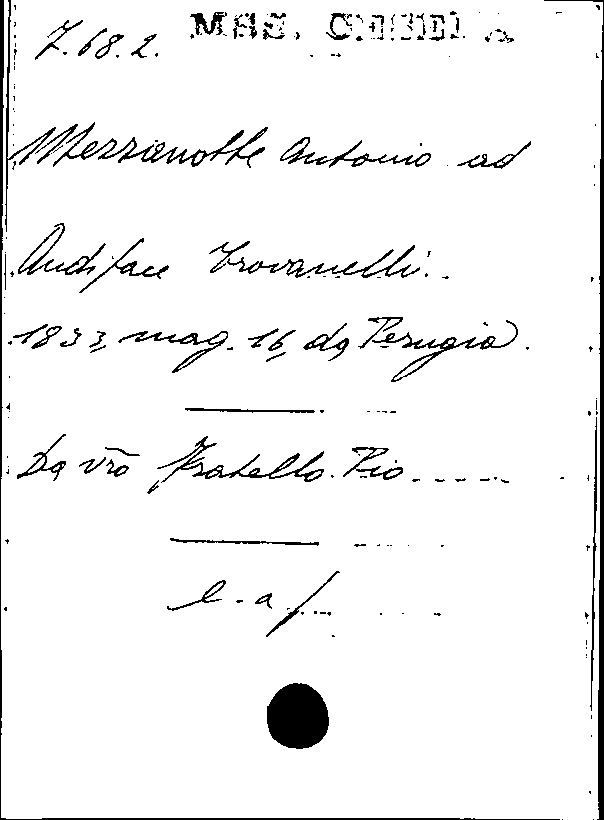 7.68.2. MSS. CESEN A
Mezzanotte Antonio ad
Audiface Trovanelli.
1833, mag. 16, da Perugia.
Da vrō Fratello Pio
l. a f.